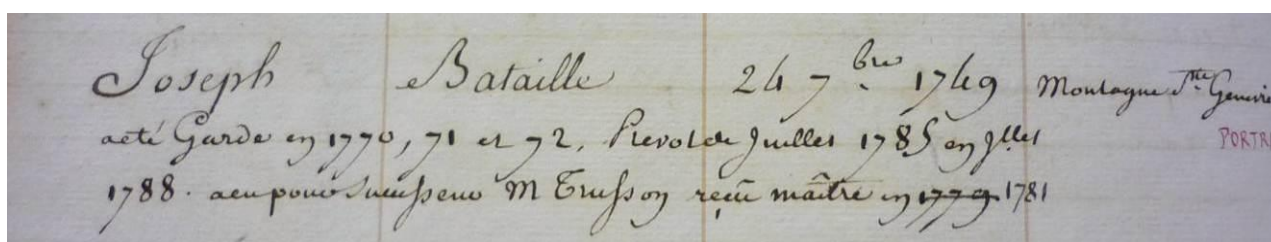 Joseph Bataille 24 7bre 1749 Montagne Ste Genevie
aeté Garde en 1770, 71 et 72. Prevot de Juillet 1785 en Jllet PORTR
1788. aeu pour Successeur M Trusson reçu maître en 1779 1781